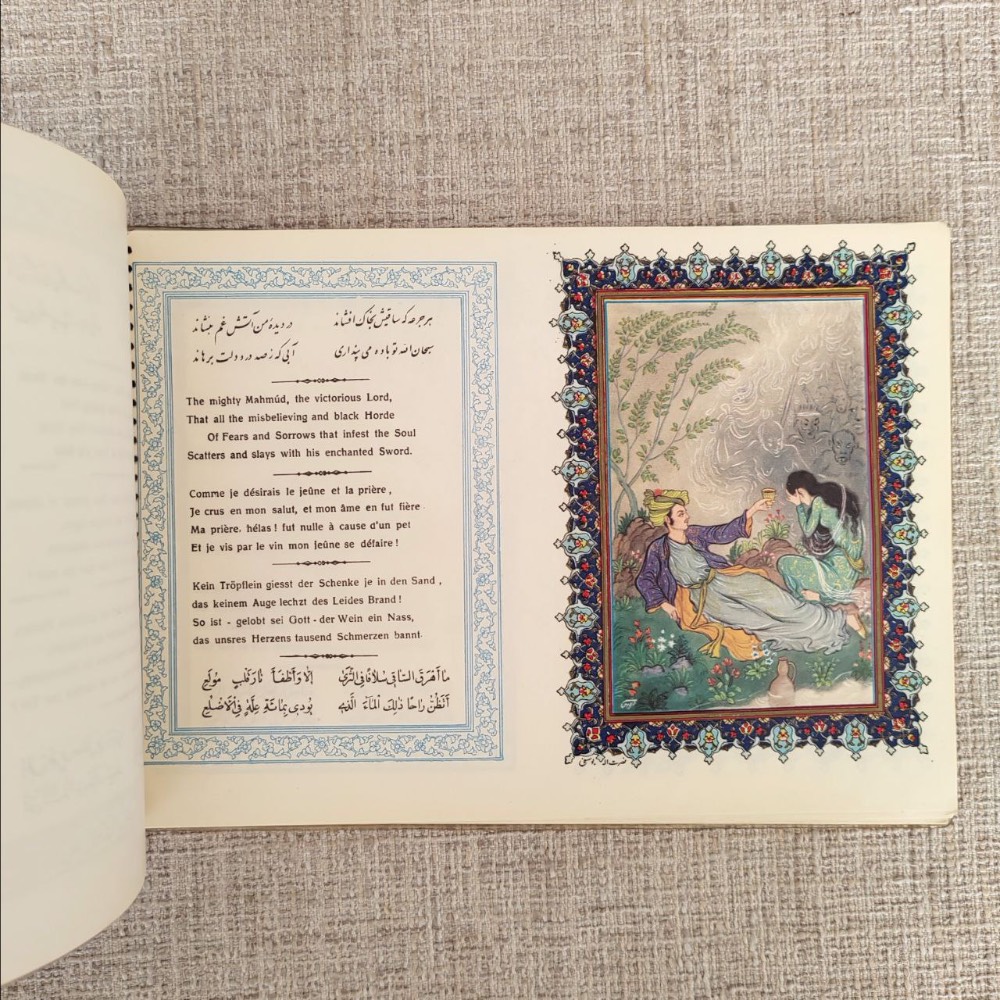 هر جرعه که ساقیش بخاک افشاند در دیدهٔ من آتش غم بنشاند
سبحان الله تو باده می پنداری آبی که ز صد درد دلت برهاند
The mighty Mahmúd, the victorious Lord,
That all the misbelieving and black Horde
Of Fears and Sorrows that infest the Soul
Scatters and slays with his enchanted Sword.
Comme je désirais le jeûne et la prière,
Je crus en mon salut, et mon âme en fut fière
Ma prière, hélas! fut nulle à cause d'un pet
Et je vis par le vin mon jeûne se défaire!
Kein Tröpflein giesst der Schenke je in den Sand,
das keinem Auge lechzt des Leides Brand!
So ist - gelobt sei Gott - der Wein ein Nass,
das unsres Herzens tausend Schmerzen bannt.
ما اهرق الساقی سلافا فی الثری الا و اطفأ نار قلب مولع
أتظن راحا ذلک الماء الذی یودی بمائة علة فی الاضلع